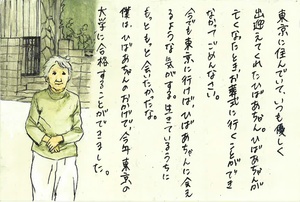 東京に住んでいて、いつも優しく
出迎えてくれたひばあちゃん。ひばあちゃんが
亡くなったときお葬式に行くことができ
なかってごめんなさい。
今でも東京に行けば、ひばあちゃんに会え
るような気がする。生きているうちに
もっともっと会いたかったな。
僕は、ひばあちゃんのおかげで、今年東京の
大学に合格することができました。